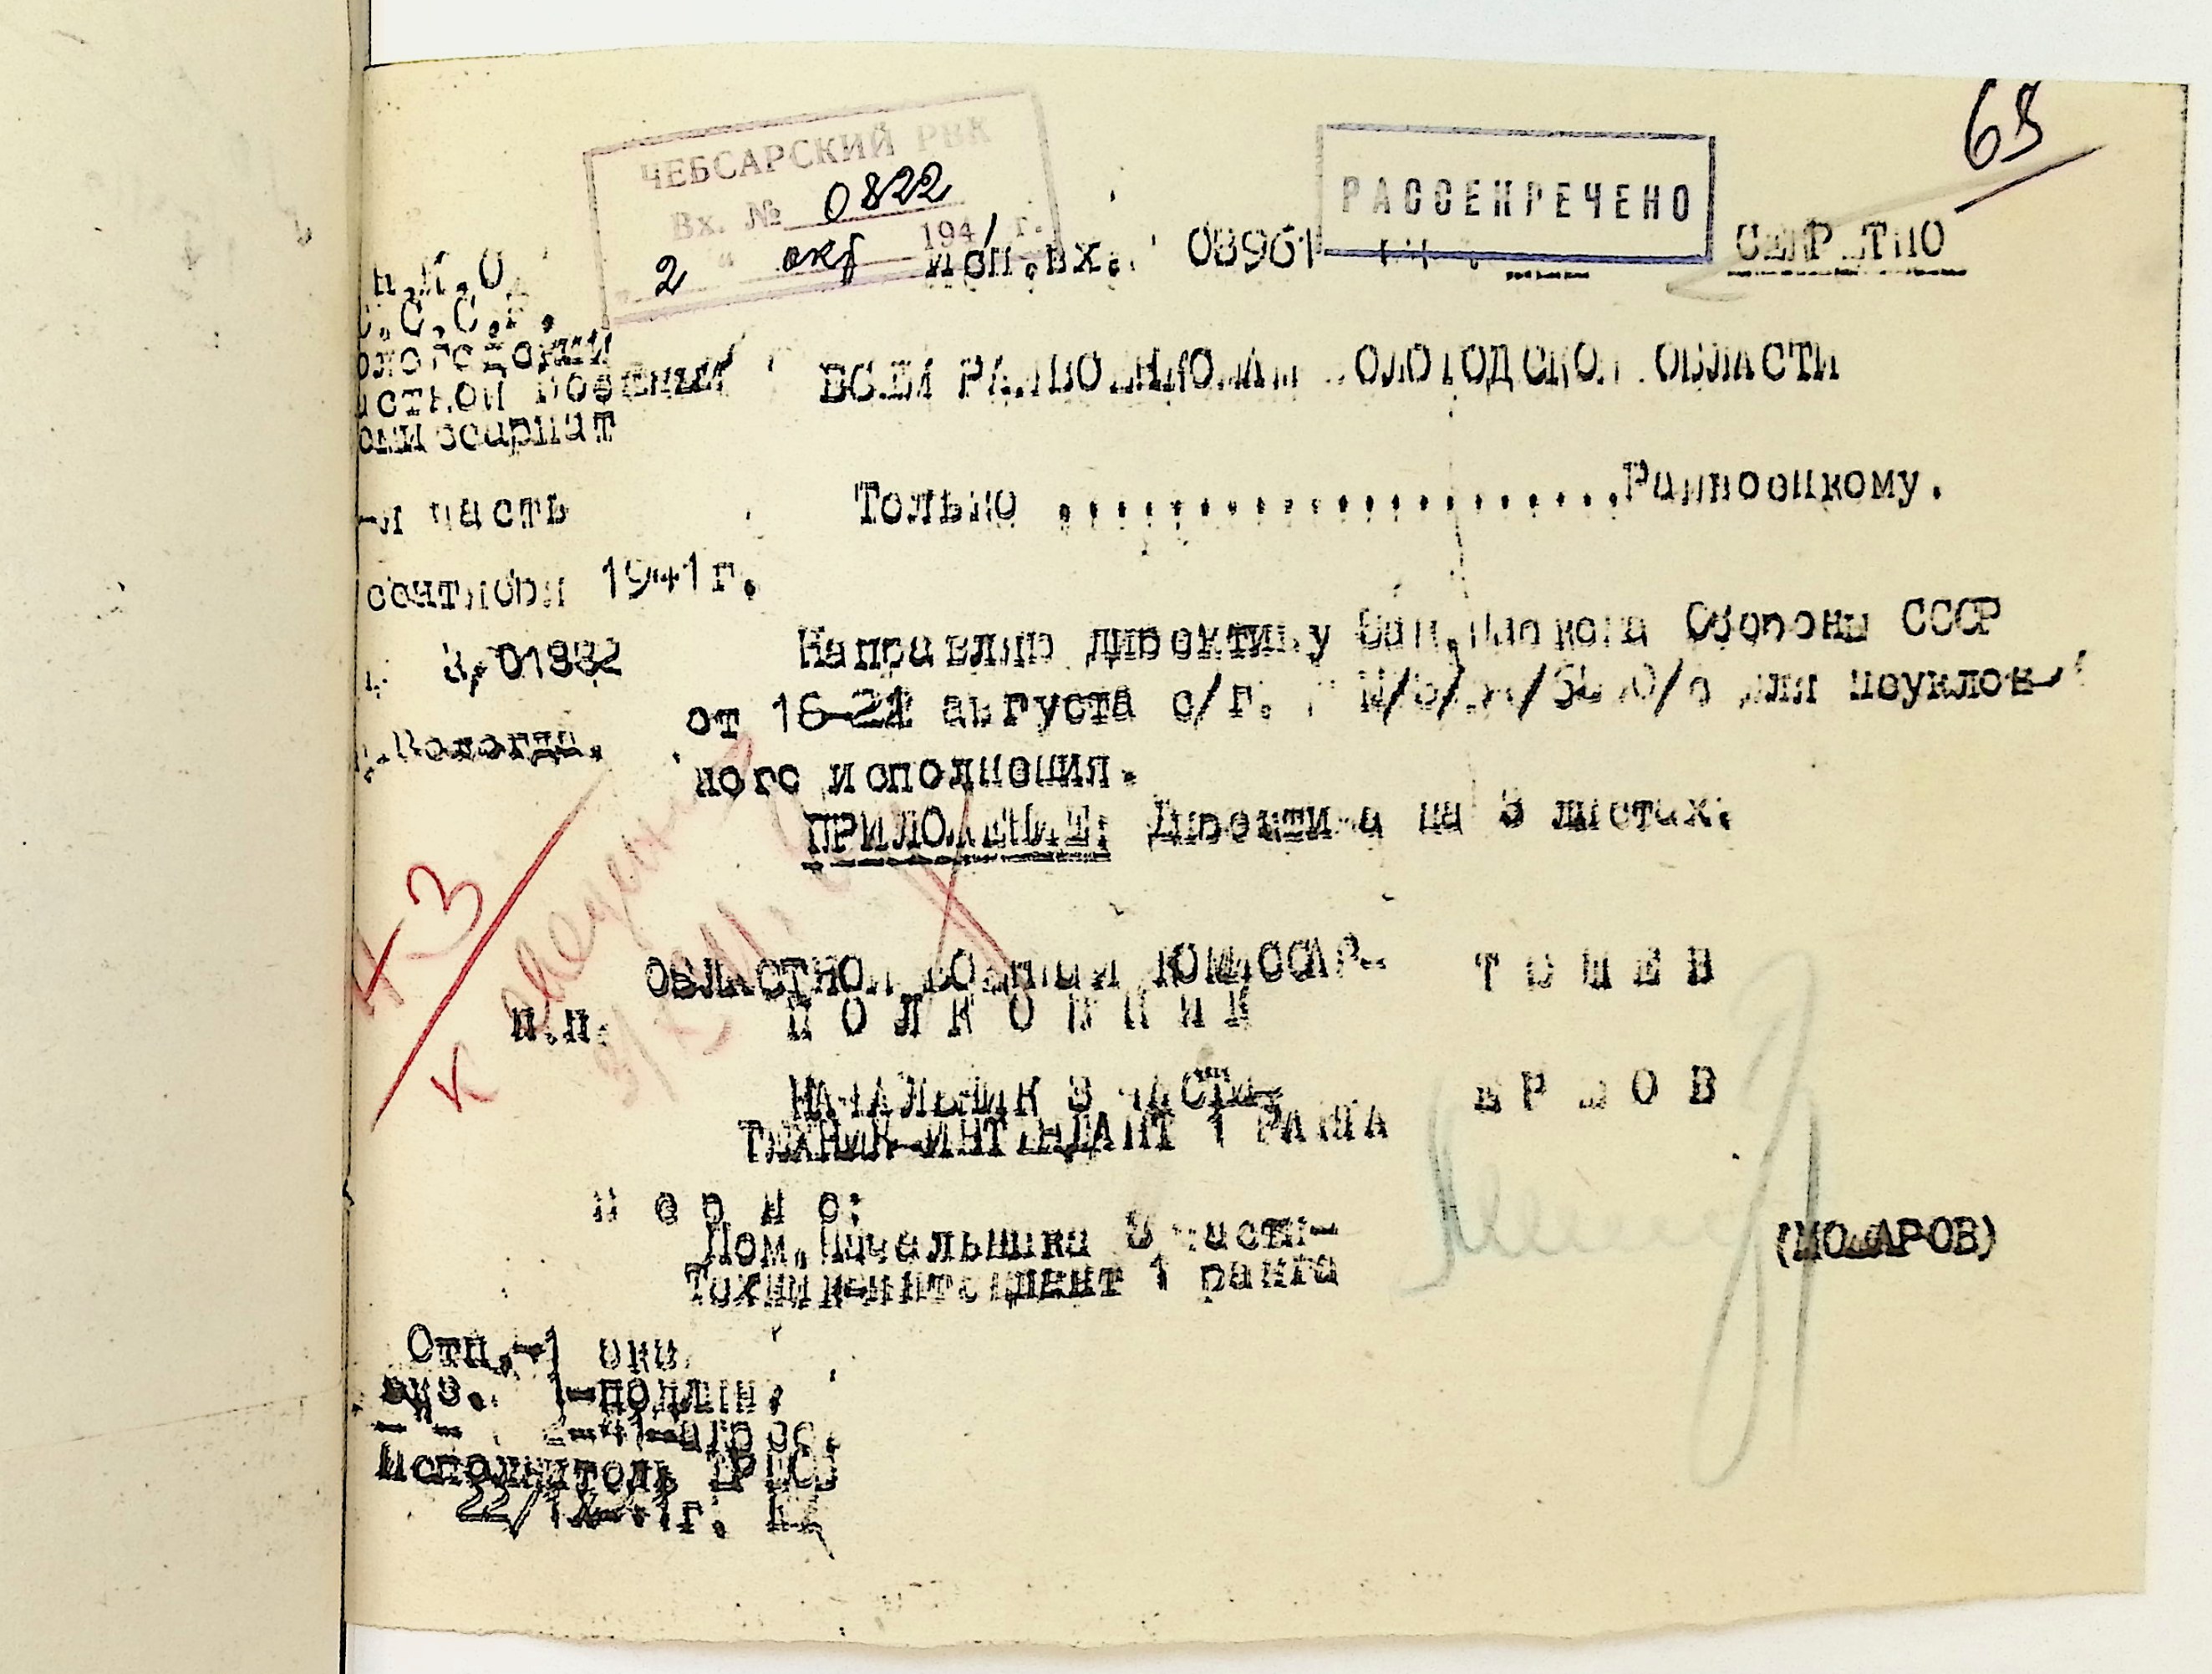 65
ЧЕБСАРСКИЙ РВК
Вх. № 0822
2 " окт 1941 г.
РАССЕКРЕЧЕНО
СЕКРЕТНО
исп.вх. 08961
Н.К.О.
С.С.С.Р.
ологодский
астной Военный
омиссариат
ВСЕМ РАЙВОЕНКОМАМ ВОЛОГОДСКОЙ ОБЛАСТИ
-я часть
Только ......................Райвоенкому.
сентября 1941г.
3/01932
г.Вологда.
Направляю директиву Зам.Наркома Обороны СССР
от 16-21 августа с/г. для неуклон-
ного исполнения.
ПРИЛОЖЕНИЕ: Директива на 3 листах.
43
К
ОБЛАСТНОЙ ВОЕННЫЙ КОМИССАР-
П О Л К О В Н И К
п.п.
НАЧАЛЬНИК 3 ЧАСТИ-
ТЕХНИК-ИНТЕНДАНТ 1 РАНГА
Е Р Ш О В
В е р н о:
Пом.Начальника 3 части-
Техник-интендант 1 ранга
Отп.-1 экз.
экз. 1-подлин.
-"-
Исполнитель
22/IX-41г.